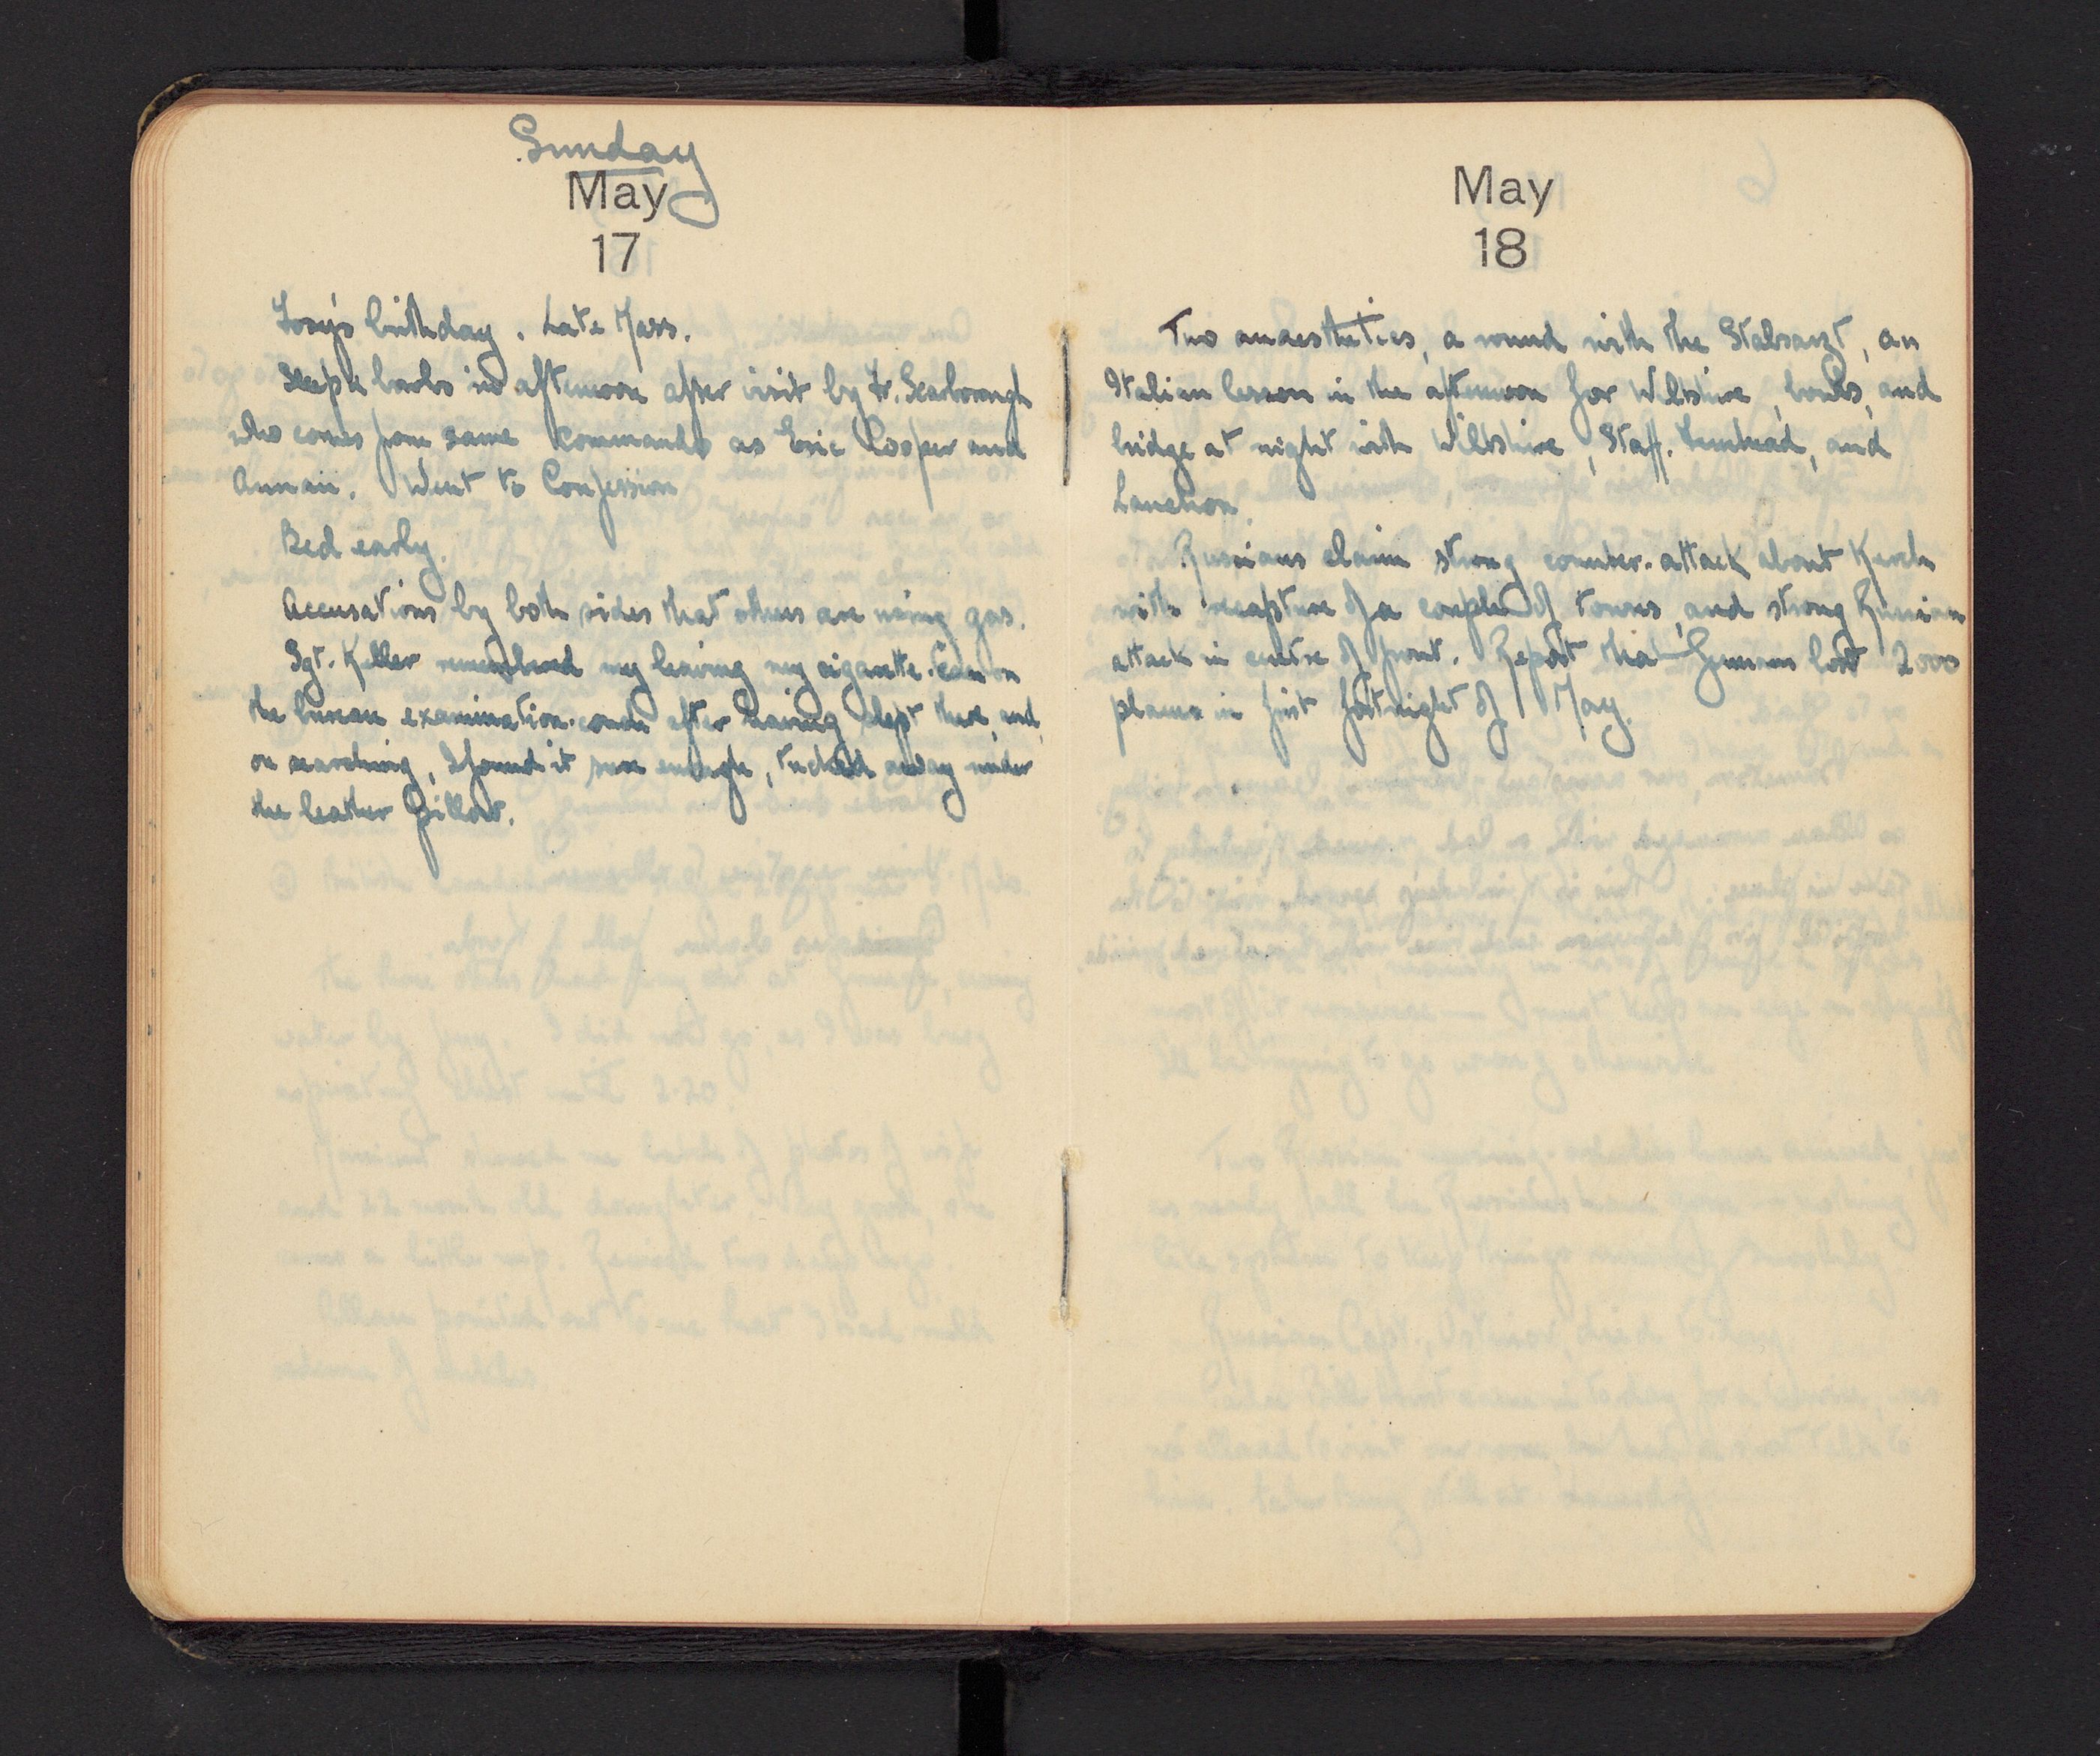 Sunday
May
17
Tony's birthday. Late Mass.
Sleep & books in afternoon after visit by Fr. Scarborough
who comes from same commando as Eric Cooper and
Went to Confession
Bed early.
Accusations by both sides that others are using gas.
Sgt. Keller remembered my leaving my cigarette-case on
the bureau examination-couch after having slept there, and,
on searching, I found it sure enough, tucked away under
the leather pillow.
May
18
Two anaesthetics, a round with the Stabsarzt, an
Italian lesson in the afternoon for Wiltshire, books, and
bridge at night with Wiltshire, Staff. and
Russians claim strong counter-attack about Kerch
with recapture of a couple of towns, and strong Russian
attack in centre of front. Report that Germans lost 2000
planes in first fortnight of May.